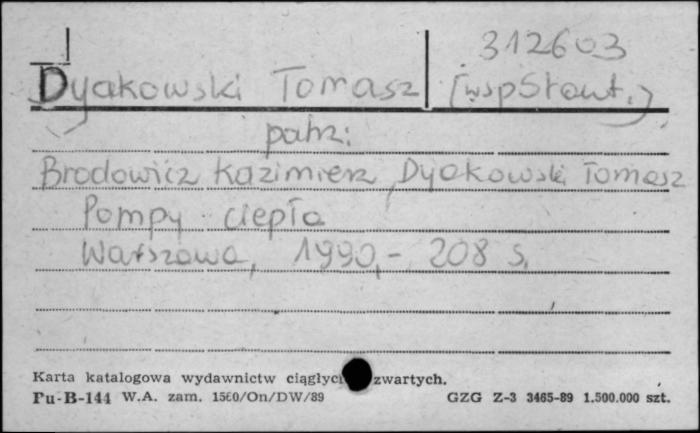 312603
Dyakowski Tomasz (współaut.)
patrz:
Brodowicz Kazimierz, Dyakowski Tomasz
Pompy ciepła
Warszawa, 1990,- 208 s.
Karta katalogowa wydawnictw ciągłyc zwartych.
Pu-B-144 W.A. zam. 1560/On/DW/89 GZG Z-3 3465-89 1.500.000 szt.